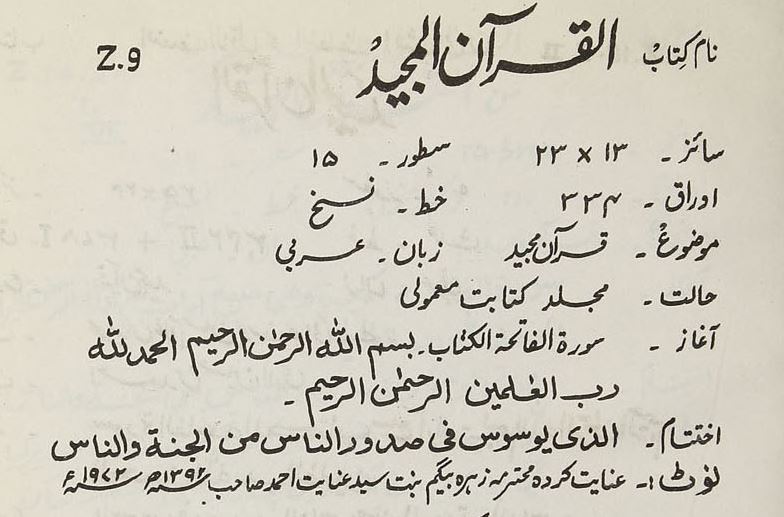 نام کتاب القرآن المجید Z.9
سائز ـ ۱۳ x ۲۳ سطور ـ ۱۵
اوراق ـ ۳۳۴ خط ـ نسخ
موضوع ـ قرآن مجید زبان ـ عربی
حالت ـ مجلد کتابت معمولی
آغاز ـ سورة الفاتحة الکتاب ـ بسم اللہ الرحمٰن الرحیم الحمد للہ
رب العٰلمین الرحمٰن الرحیم ـ
اختتام ـ الذی یوسوس فی صدور الناس من الجنة والناس
نوٹ :ـ عنایت کردہ محترمہ زہرہ بیگم بنت سید عنایت احمد صاحب ۱۳۹۲ھ ۱۹۷۲ء